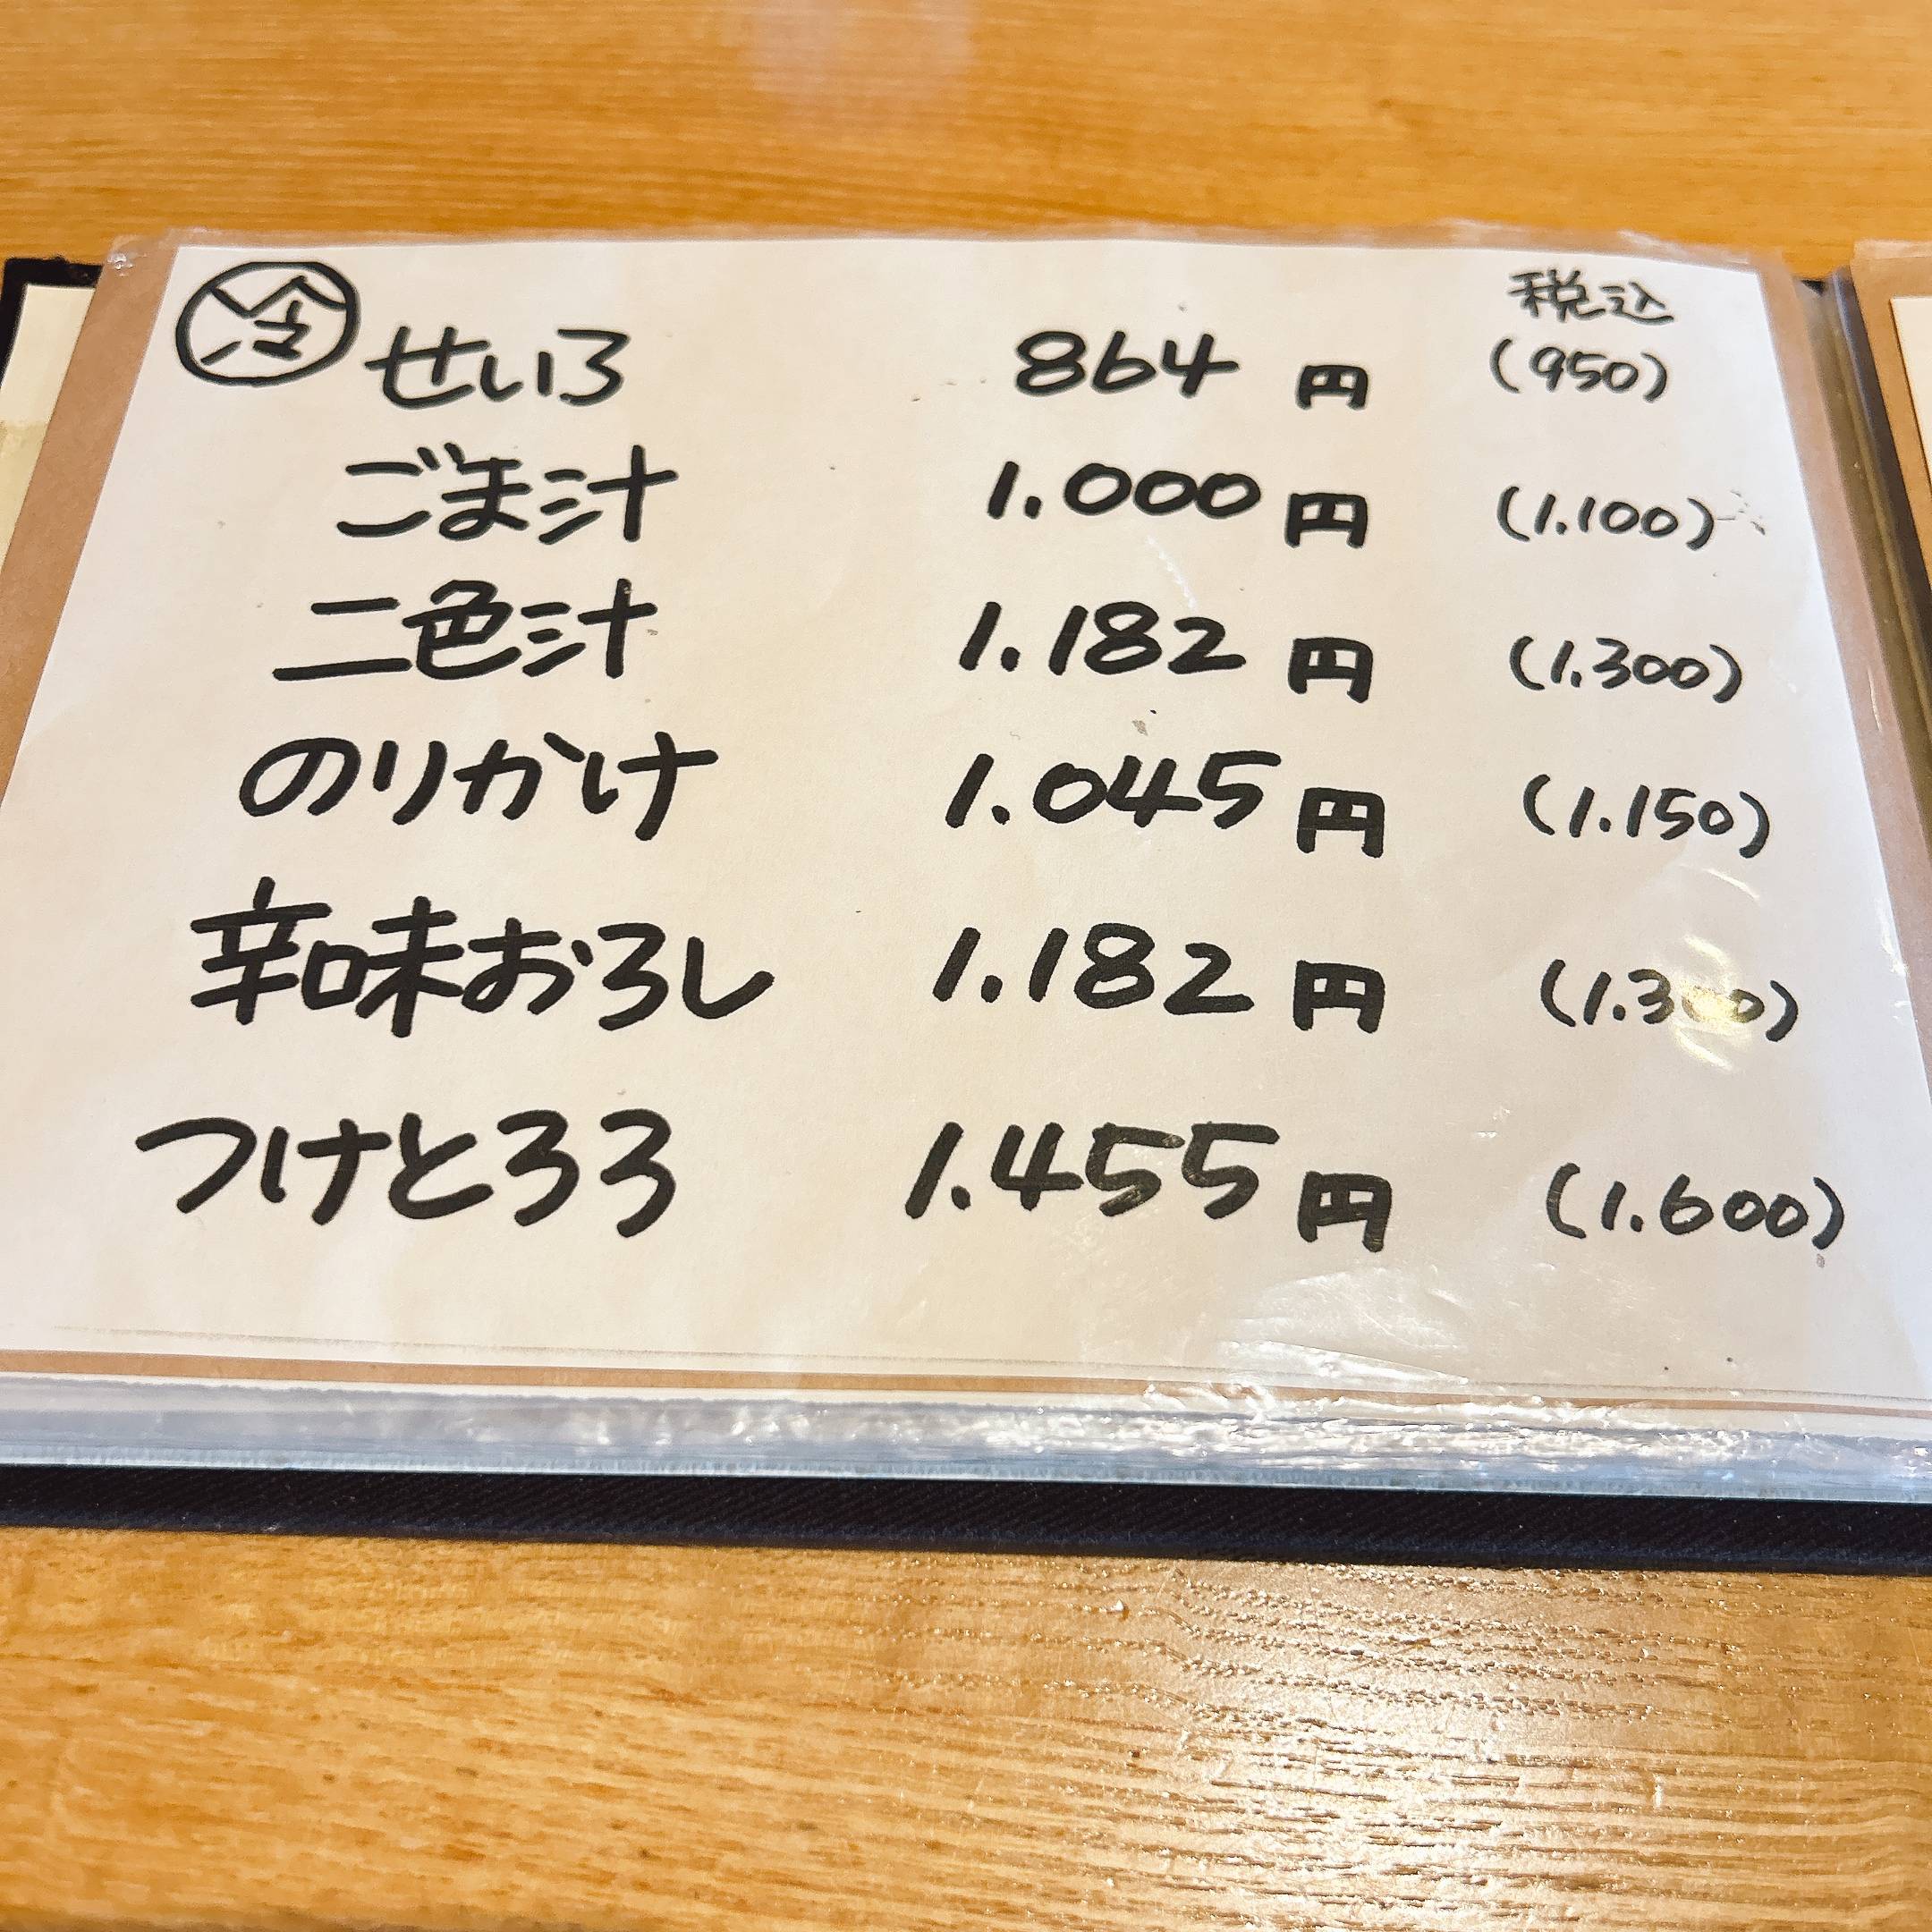 税込
㊀冷 せいろ 864 円 (950)
ごま汁 1.000 円 (1.100)
二色汁 1.182 円 (1.300)
のりかけ 1.045 円 (1.150)
辛味おろし 1.182 円 (1.300)
つけとろろ 1.455 円 (1.600)